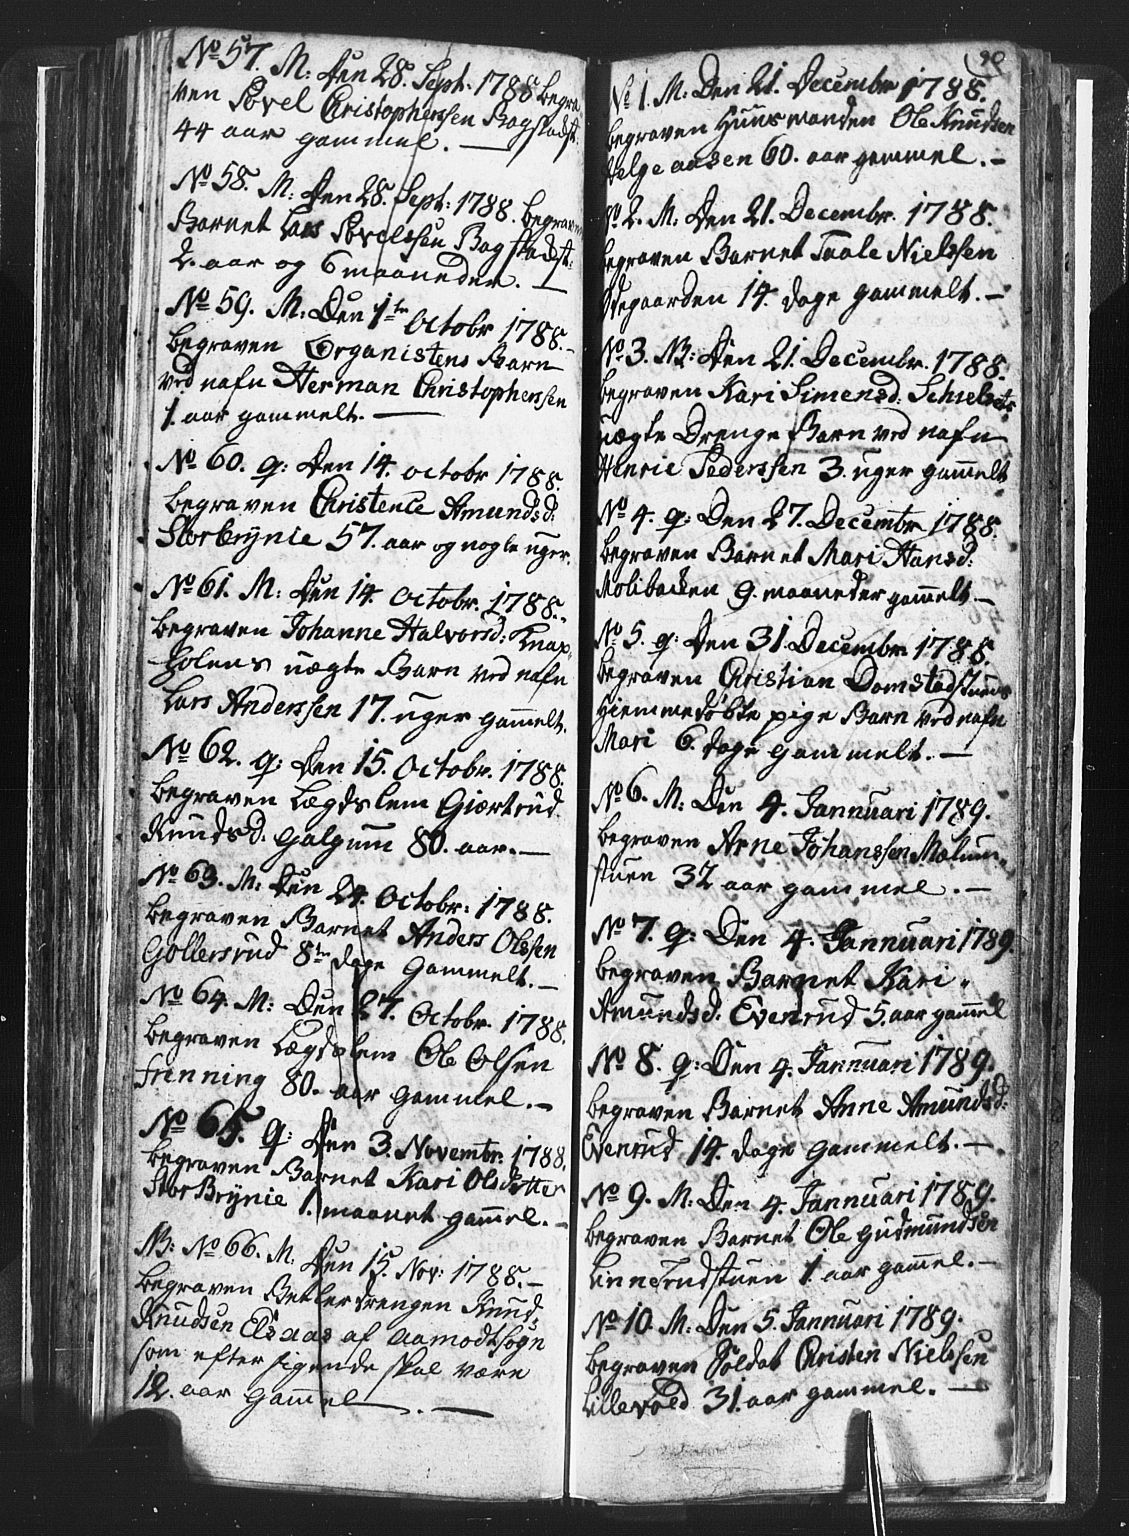 No 57. M: Den 28. Sept. 1788 begra
ven Povel Christophersen Bagstadst:
44 aar gammel. —
No 58. M: Den 28. Sept: 1788. begraven
Barnet Lars Povelssen Bagstadst:
2. aar og 6 maaneder. —
No 59. M: Den 1te Octobr 1788.
begraven Organistens Barn
ved nafn Herman Christophersen
1. aar gammelt. —
No 60. q: Den 14. octobr 1788.
begraven Christence Amundsd:
Storbrynie 57. aar og nogle uger.
No 61. M: Den 14. Octobr. 1788.
begraven Johanne Halvorsd: Knap-
holens uægte Barn ved nafn
Lars Anderssen 17. uger gammelt.
No 62. q: Den 15. Octobr. 1788.
begraven Lægdslem Giørtrud
Knudsd. Galgum 80. aar. —
No 63. M: Den 24. Octobr: 1788.
begraven Barnet Anders Olssen
Gollersrud 8te dage gammelt. —
No 64. M: Den 27. Octobr. 1788.
begraven Lægdslem Ole Olsen
Frenning 80. aar gammel. —
No 65. q: Den 3. Novembr: 1788.
begraven Barnet Kari Olsdatter
StorBrynie 1. maanet gammel. —
NB: No 66. M. Den 15. Nov: 1788. —
begraven Betlerdrengen Knud
Knudsen Elsaas af Aamodtsogn
som efter sigende skal være
12. aar gammel. —
90
No 1. M: Den 21. Decembr 1788.
begraven Huusmanden Ole Knudsen
Helgeaasen 60. aar gammel. —
No 2. M: Den 21. Decembr. 1788.
begraven Barnet Taale Nielssen
Ødegaarden 14. dage gammelt. —
No 3. NB: Den 21. Decembr. 1788.
begraven Kari Simensd: Schielsets
uægte Drenge Barn ved nafn
Henric Pederssen 3. uger gammelt
No 4. q: Den 27. Decembr 1788.
begraven Barnet Mari Hansd:
Molibacken 9. maaneder gammelt. —
No 5. q: Den 31. Decembr. 1788.
begraven Christian Domstadstuens
Hiemmedøbte pige Barn ved nafn
Mari 6. dage gammelt. —
No 6. M: Den 4. Jannuari 1789.
begraven Arne Johanssen Mælum-
stuen 32 aar gammel. —
No 7. q: Den 4. Jannuari 1789.
begraven Barnet Kari
Amundsd. Evenrud 5. aar gammel
No 8. q: Den 4. Jannuari 1789.
begraven Barnet Anne Amundsd:
Evenrud 14. dage gammelt. —
No 9. M: Den 4. Jannuari 1789.
begraven Barnet Ole Gudmundsen
Linnerudstuen 1. aar gammel. —
No 10. M: Den 5. Jannuari 1789.
begraven Soldat Christen Nielssen
Lillevold 31. aar gammel. —